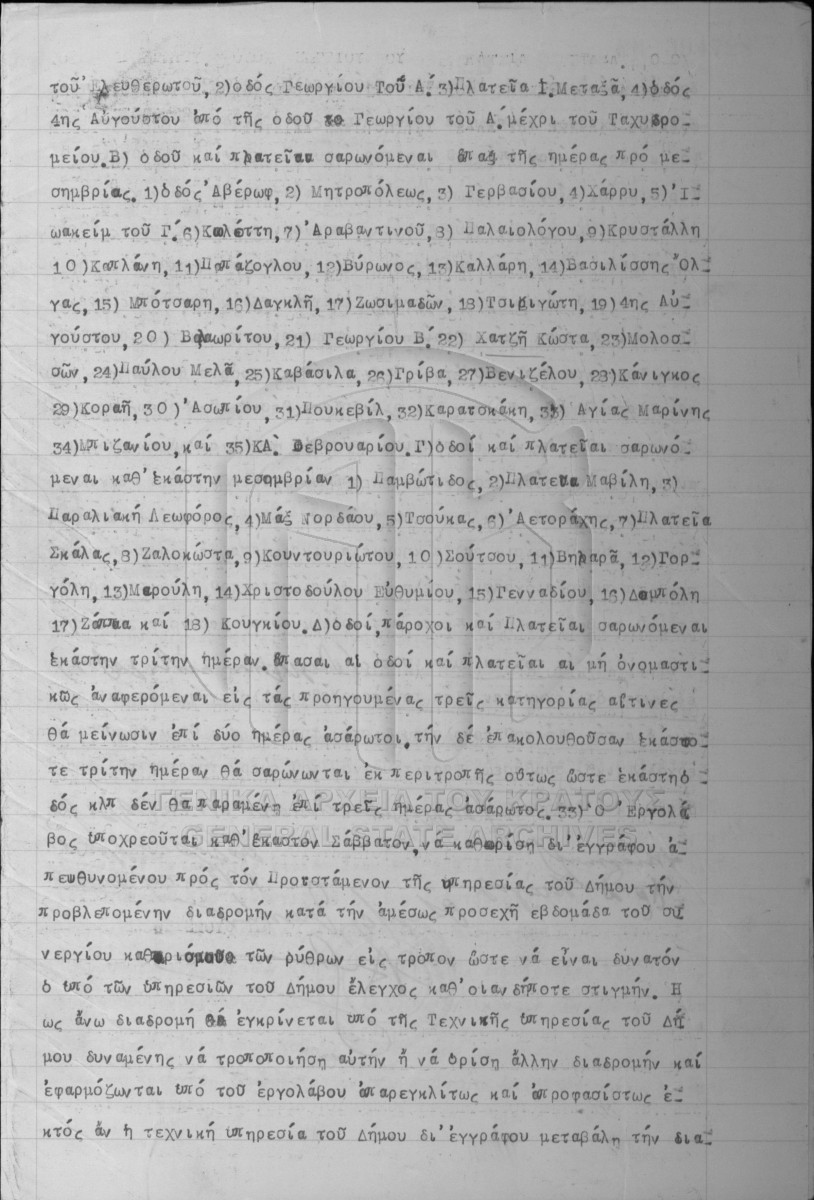 τοῦ Ἐλευθερωτοῦ, 2)ὁδός Γεωργίου Τοῦ Α΄ 3)Πλατεῖα Ι. Μεταξᾶ, 4)ὁδός
4ης Αὐγούστου ἀπό τῆς ὁδοῦ Γεωργίου τοῦ Α΄ μέχρι τοῦ Ταχυδρο-
μείου. Β) ὁδοῦ καί πλατεῖαι σαρωνόμεναι ἅπαξ τῆς ἡμέρας πρό με-
σημβρίας. 1)ὁδός Ἀβέρωφ, 2) Μητροπόλεως, 3) Γερβασίου, 4)Χάρρυ, 5)Ἰ-
ωακείμ τοῦ Γ΄. 6)Κωλέττη, 7)Ἀραβαντινοῦ, 8) Παλαιολόγου, 9)Κρυστάλλη
10)Καπλάνη, 11)Παπάζογλου, 12)Βύρωνος, 13)Καλλάρη, 14)Βασιλίσσης Ὄλ-
γας, 15) Μπότσαρη, 16)Δαγκλῆ, 17)Ζωσιμαδῶν, 18)Τσιριγώτη, 19)4ης Αὐ-
γούστου, 20) Βαλαωρίτου, 21) Γεωργίου Β΄. 22) Χατζῆ Κώστα, 23)Μολοσ-
σῶν, 24)Παύλου Μελᾶ, 25)Καβάσιλα, 26)Γρίβα, 27)Βενιζέλου, 28)Κάνιγκος
29)Κοραῆ, 30)Ἀσωπίου, 31)Πουκεβίλ, 32)Καραϊσκάκη, 33) Ἁγίας Μαρίνης
34)Μπιζανίου, καί 35)ΚΑ΄. Φεβρουαρίου. Γ)ὁδοί καί πλατεῖαι σαρωνό-
μεναι καθ' ἑκάστην μεσημβρίαν 1) Παμβώτιδος, 2)Πλατεῖα Μαβίλη, 3)
Παραλιακή Λεωφόρος, 4)Μάξ Νορδάου, 5)Τσούκας, 6)Ἀετοράχης, 7)Πλατεῖα
Σκάλας, 8)Ζαλοκώστα, 9)Κουντουριώτου, 10)Σούτσου, 11)Βηλαρᾶ, 12)Γορ-
γόλη, 13)Μαρούλη, 14)Χριστοδούλου Εὐθυμίου, 15)Γενναδίου, 16)Δομπόλη
17)Ζάππα καί 18) Κουγκίου. Δ)ὁδοί, πάροχοι καί Πλατεῖαι σαρωνόμεναι
ἑκάστην τρίτην ἡμέραν. ἅπασαι αἱ ὁδοί καί πλατεῖαι αι μή ὀνομαστι-
κῶς ἀναφερόμεναι εἰς τάς προηγουμένας τρεῖς κατηγορίας αἵτινες
θά μείνωσιν ἐπί δύο ἡμέρας ἀσάρωτοι. τήν δέ ἐπακολουθοῦσαν ἑκάστο-
τε τρίτην ἡμέραν θά σαρώνωνται ἐκ περιτροπῆς οὕτως ὥστε ἑκάστη ὁ
δός κλπ δέν θα παραμένη ἐπί τρεῖς ἡμέρας ἀσάρωτος. 33)Ὁ Ἐργολά-
βος ὑποχρεοῦται καθ' ἕκαστον Σάββατον, νά καθορίση δι' ἐγγράφου ἀ-
πευθυνομένου πρός τόν Προϊστάμενον τῆς ὑπηρεσίας τοῦ Δήμου τήν
προβλεπομένην διαδρομήν κατά τήν ἀμέσως προσεχῆ εβδομάδα τοῦ συ
νεργίου καθαρισμοῦ τῶν ρύθρων εἰς τρόπον ὥστε νά εἶναι δυνατόν
ὁ ὑπό τῶν ὑπηρεσιῶν τοῦ Δήμου ἔλεγχος καθ' οιανδήποτε στιγμήν. Η
ως ἄνω διαδρομή θά ἐγκρίνεται ὑπό τῆς Τεχνικῆς ὑπηρεσίας τοῦ Δή-
μου δυναμένης νά τροποποιήση αὐτήν ἤ νά ὁρίση ἄλλην διαδρομήν καί
ἐφαρμόζωνται ὑπό τοῦ ἐργολάβου ἀπαρεγκλίτως καί ἀπροφασίστως ἐ-
κτός ἄν ἡ τεχνική ὑπηρεσία τοῦ Δήμου δι' ἐγγράφου μεταβάλη τήν δια-
ΓΕΝΙΚΑ ΑΡΧΕΙΑ ΤΟΥ ΚΡΑΤΟΥΣ
GENERAL STATE ARCHIVES